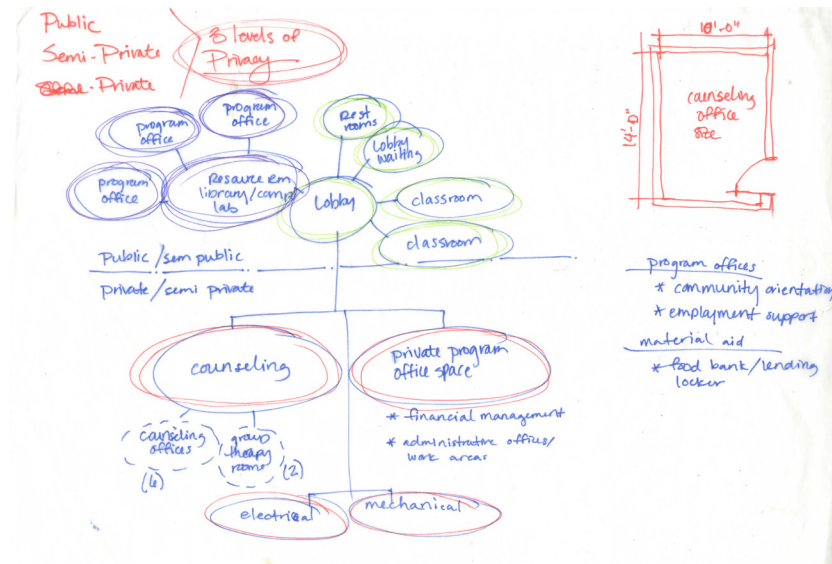 Public
Semi-Private
Private
3 levels of
Privacy
program
office
program
office
program
office
Resource rm
library/comp
lab
Rest
rooms
Lobby
waiting
Lobby
classroom
classroom
Public/semi public
Private/semi private
counseling
private program
office space
counseling
offices
(6)
group
therapy
rooms
(2)
* financial management
* administrative offices/
work areas
electrical
mechanical
10'-0"
14'-0"
counseling
office
size
program offices
* community orientation
* employment support
material aid
* food bank/lending
locker